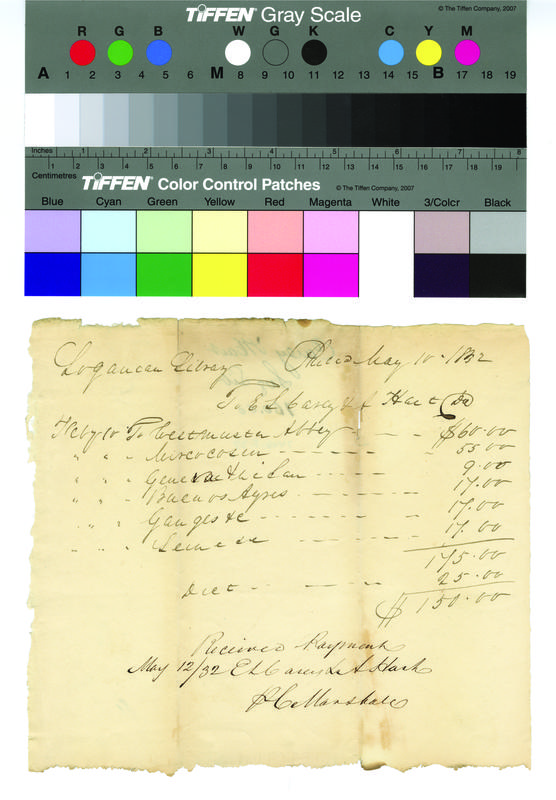 TIFFEN® Gray Scale © The Tiffen Company, 2007
R G B W G K C Y M
A 1 2 3 4 5 6 M 8 9 10 11 12 13 14 15 B 17 18 19
Inches 1 2 3 4 5 6 7 8
Centimetres 1 2 3 4 5 6 7 8 9 10 11 12 13 14 15 16 17 18 19
TIFFEN® Color Control Patches © The Tiffen Company, 2007
Blue Cyan Green Yellow Red Magenta White 3/Color Black
Loganean Library Philad May 10 - 1832
To E L Carey & A Hart Dr
Feby 10 To Westminster Abbey - - - $60.00
" " " Microcosm - - - - - 55.00
" " " - - - - 9.00
" " " Buenos Ayres - - - - 17.00
" " " Ganges &c - - - - 17.00
" " " Seine &c - - - - 17.00
175.00
- - - - 25.00
$150.00
Received Payment
May 12/32 E L Carey & A Hart
Marshall